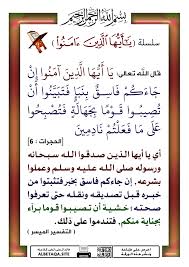 بسم الله الرحمن الرحيم
سلسلة ﴿يَا أَيُّهَا الَّذِينَ ءَامَنُوا﴾
قال الله تعالى: ﴿يَا أَيُّهَا الَّذِينَ آمَنُوا إِنْ
جَاءَكُمْ فَاسِقٌ بِنَبَإٍ فَتَبَيَّنُوا أَنْ
تُصِيبُوا قَوْمًا بِجَهَالَةٍ فَتُصْبِحُوا
عَلَى مَا فَعَلْتُمْ نَادِمِينَ﴾
[الحجرات: 6]
أي يا أيها الذين صدقوا الله سبحانه
ورسوله صلى الله عليه وسلم وعملوا
بشرعه، إن جاءكم فاسق بخبر فتثبتوا من
خبره قبل تصديقه ونقله حتى تعرفوا
صحته؛ خشية أن تصيبوا قوما برآء
بجناية منكم، فتندموا على ذلك.
(التفسير الميسر)
ALBETAQA.SITE